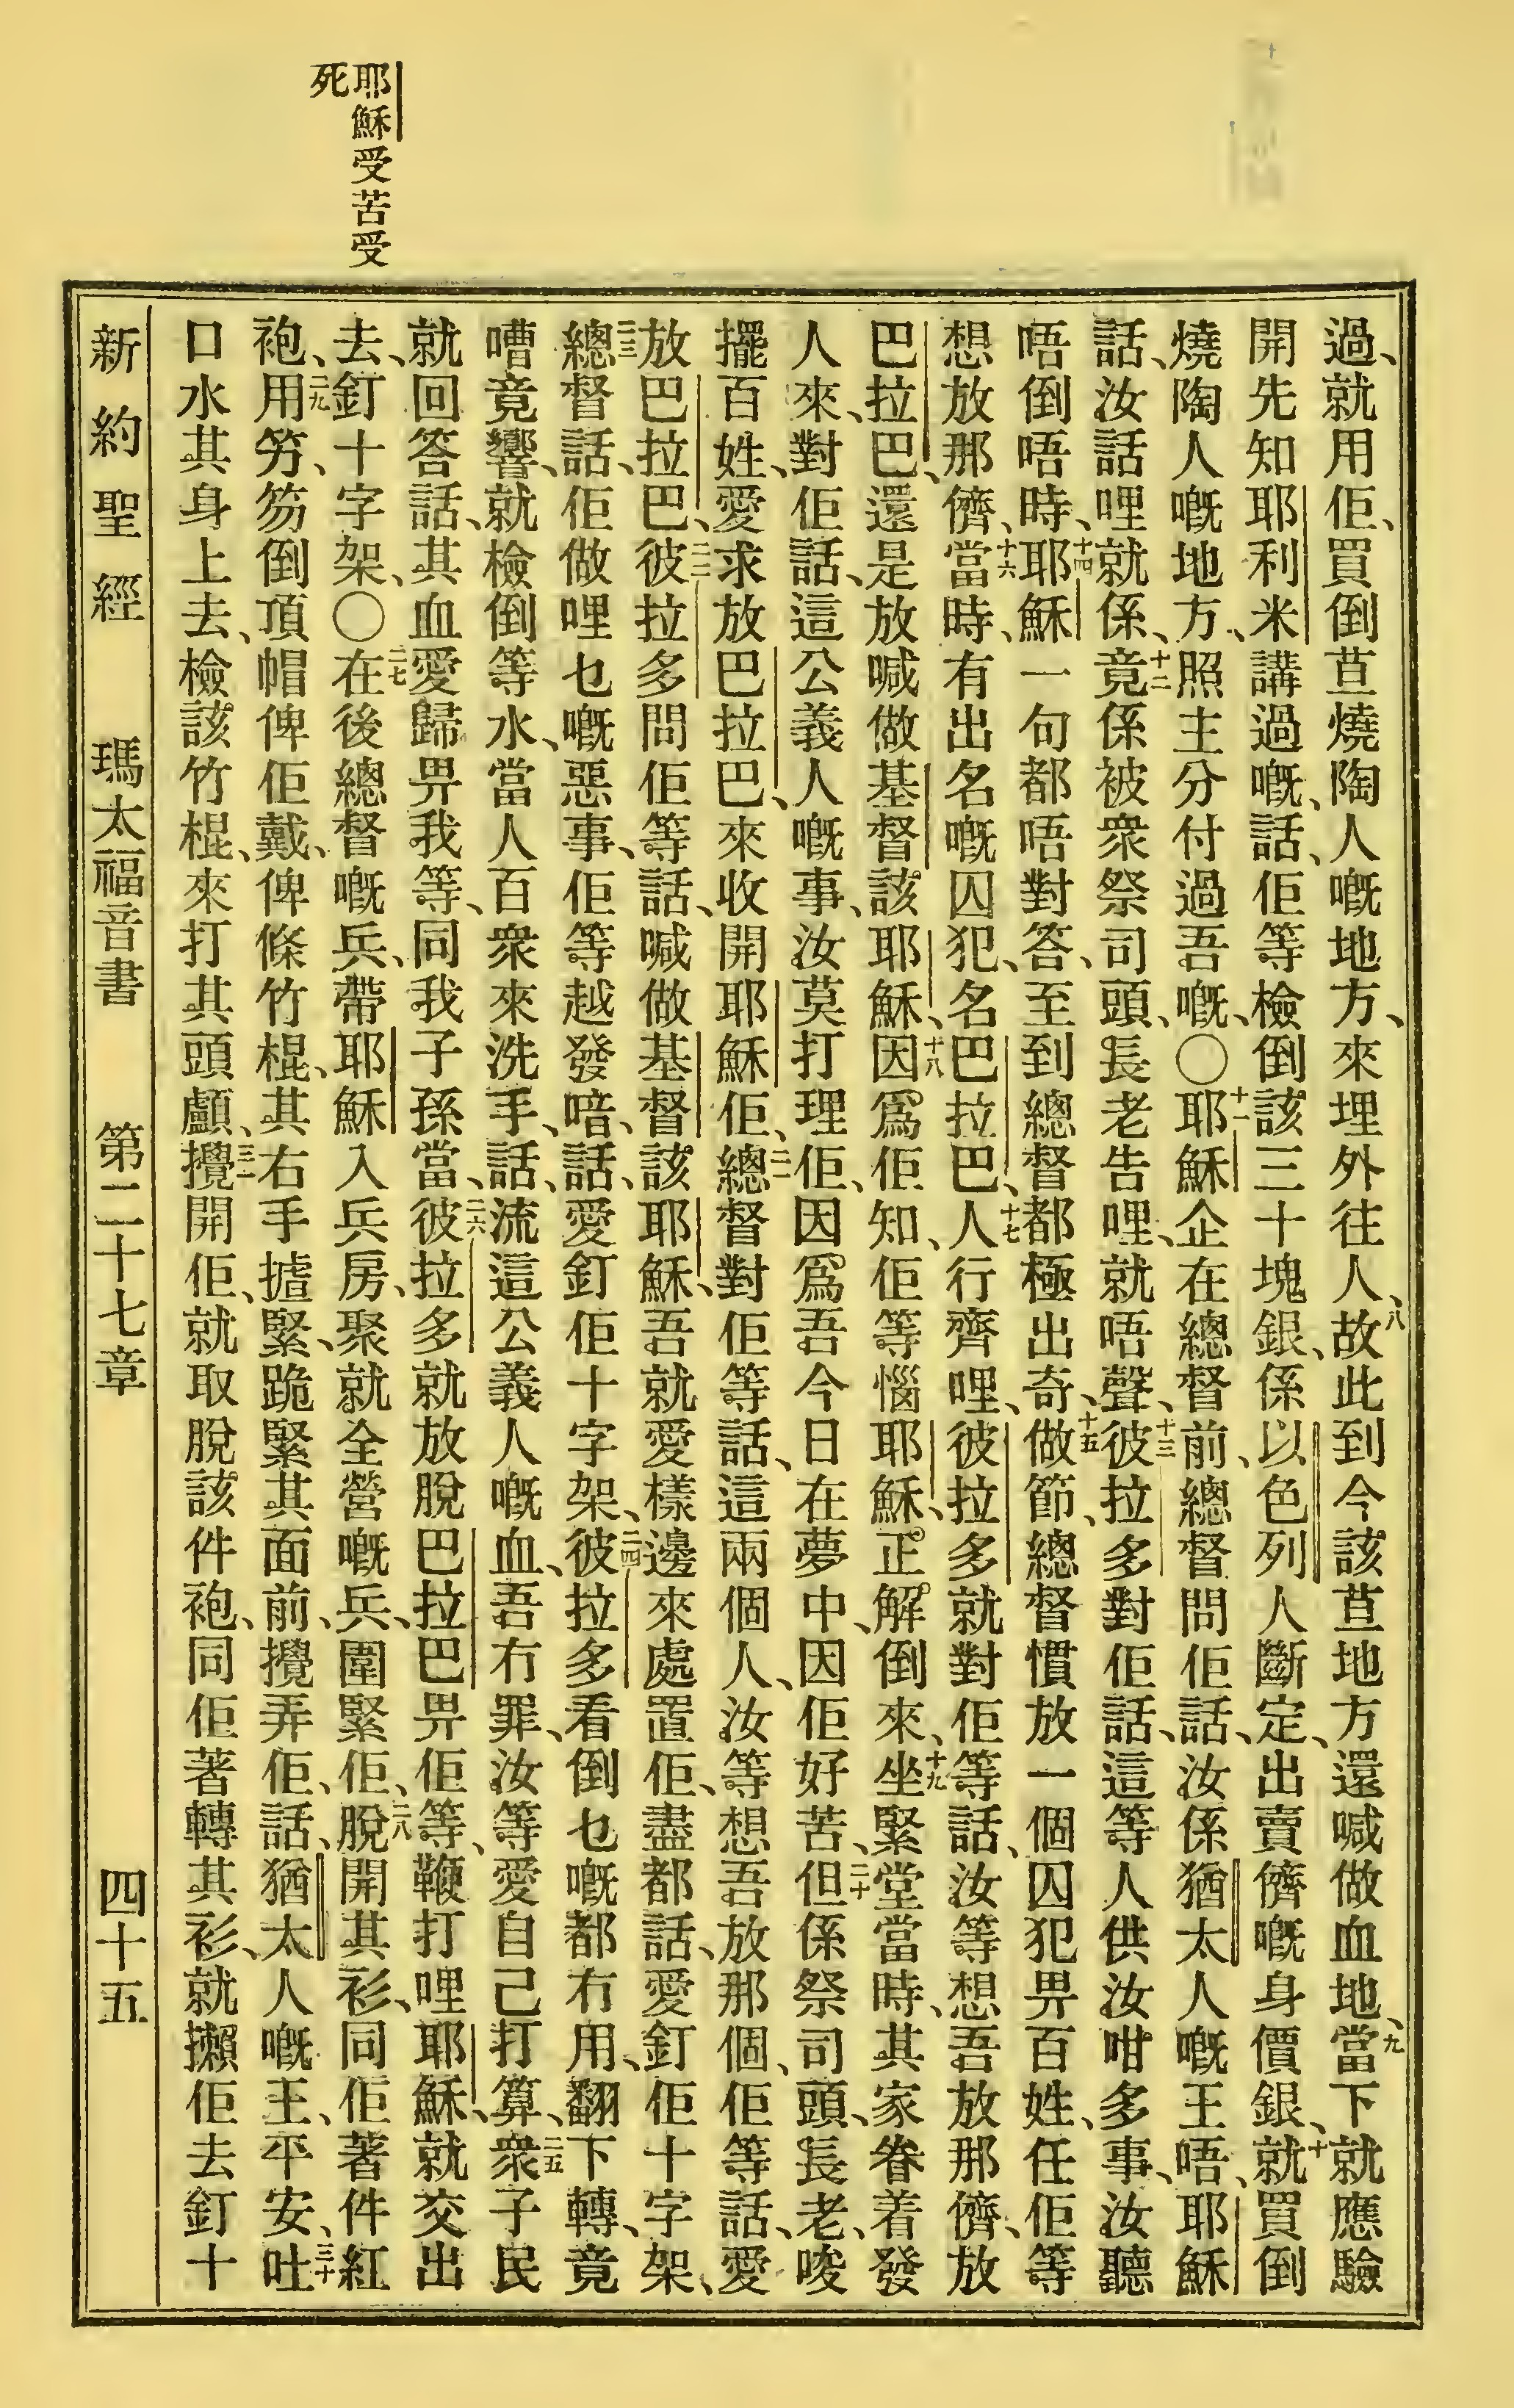 耶穌受苦受
死
過、就用佢、買倒苴燒陶人嘅地方、來埋外往人、八故此到今該苴地方還喊做血地、九當下就應驗
開先知耶利米講過嘅、話、佢等檢倒該三十塊銀、係以色列人斷定、出賣儕嘅身價銀、十就買倒
燒陶人嘅地方、照主分付過吾嘅、〇十一耶穌企在總督前、總督問佢話、汝係猶太人嘅王唔、耶穌
話、汝話哩就係、十二竟係被衆祭司頭、長老告哩、就唔聲、十三彼拉多對佢話、這等人供汝咁多事、汝聽
唔倒唔時、十四耶穌一句都唔對答、至到總督都極出奇、十五做節、總督慣放一個囚犯畀百姓、任佢等
想放那儕、十六當時、有出名嘅囚犯、名巴拉巴、十七人行齊哩、彼拉多就對佢等話、汝等想吾放那儕、放
巴拉巴、還是放喊做基督該耶穌、十八因爲佢知、佢等惱耶穌、正解倒來、十九坐緊堂當時、其家眷着發
人來、對佢話、這公義人嘅事、汝莫打理佢、因爲吾今日在夢中、因佢好苦、二十但係祭司頭、長老、唆
擺百姓、愛求放巴拉巴、來收開耶穌佢、二一總督對佢等話、這兩個人、汝等想吾放那個、佢等話、愛
放巴拉巴、二二彼拉多問佢等話、喊做基督該耶穌、吾就愛樣邊來處置佢、盡都話、愛釘佢十字架、
二三總督話、佢做哩乜嘅惡事、佢等越發喑、話、愛釘佢十字架、二四彼拉多看倒乜嘅都冇用、翻下轉、竟
嘈竟響、就檢倒等水、當人百衆來洗手、話、流這公義人嘅血、吾冇罪、汝等愛自己打算、二五衆子民
就回答話、其血愛歸畀我等、同我子孫當、二六彼拉多就放脫巴拉巴畀佢等、鞭打哩耶穌、就交出
去、釘十字架、〇二七在後總督嘅兵、帶耶穌入兵房、聚就全營嘅兵、圍緊佢、二八脫開其衫、同佢著件紅
袍、二九用竻、笏倒頂帽俾佢戴、俾條竹棍、其右手揸緊、跪緊其面前、攪弄佢、話、猶太人嘅王、平安、三十吐
口水其身上去、檢該竹棍、來打其頭顱、三一攪開佢、就取脫該件袍、同佢著轉其衫、就攋佢去釘十
新約聖經　瑪太福音書　第二十七章　四十五